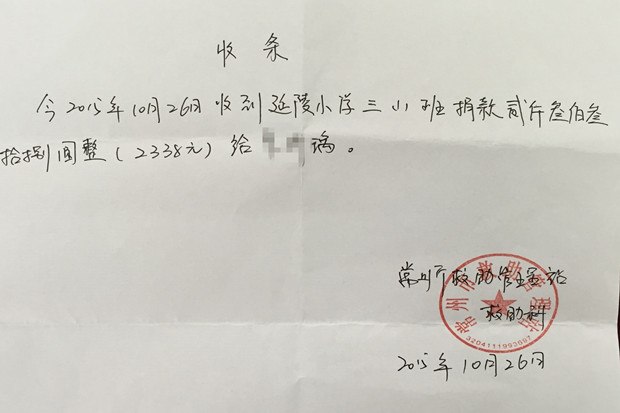 收条
今2015年10月26日收到延陵小学三(1)班捐款贰仟叁佰叁
拾捌圆整(2338元)给 。
常州市救助管理站
救助科
2015年10月26日
常州市救助管理站